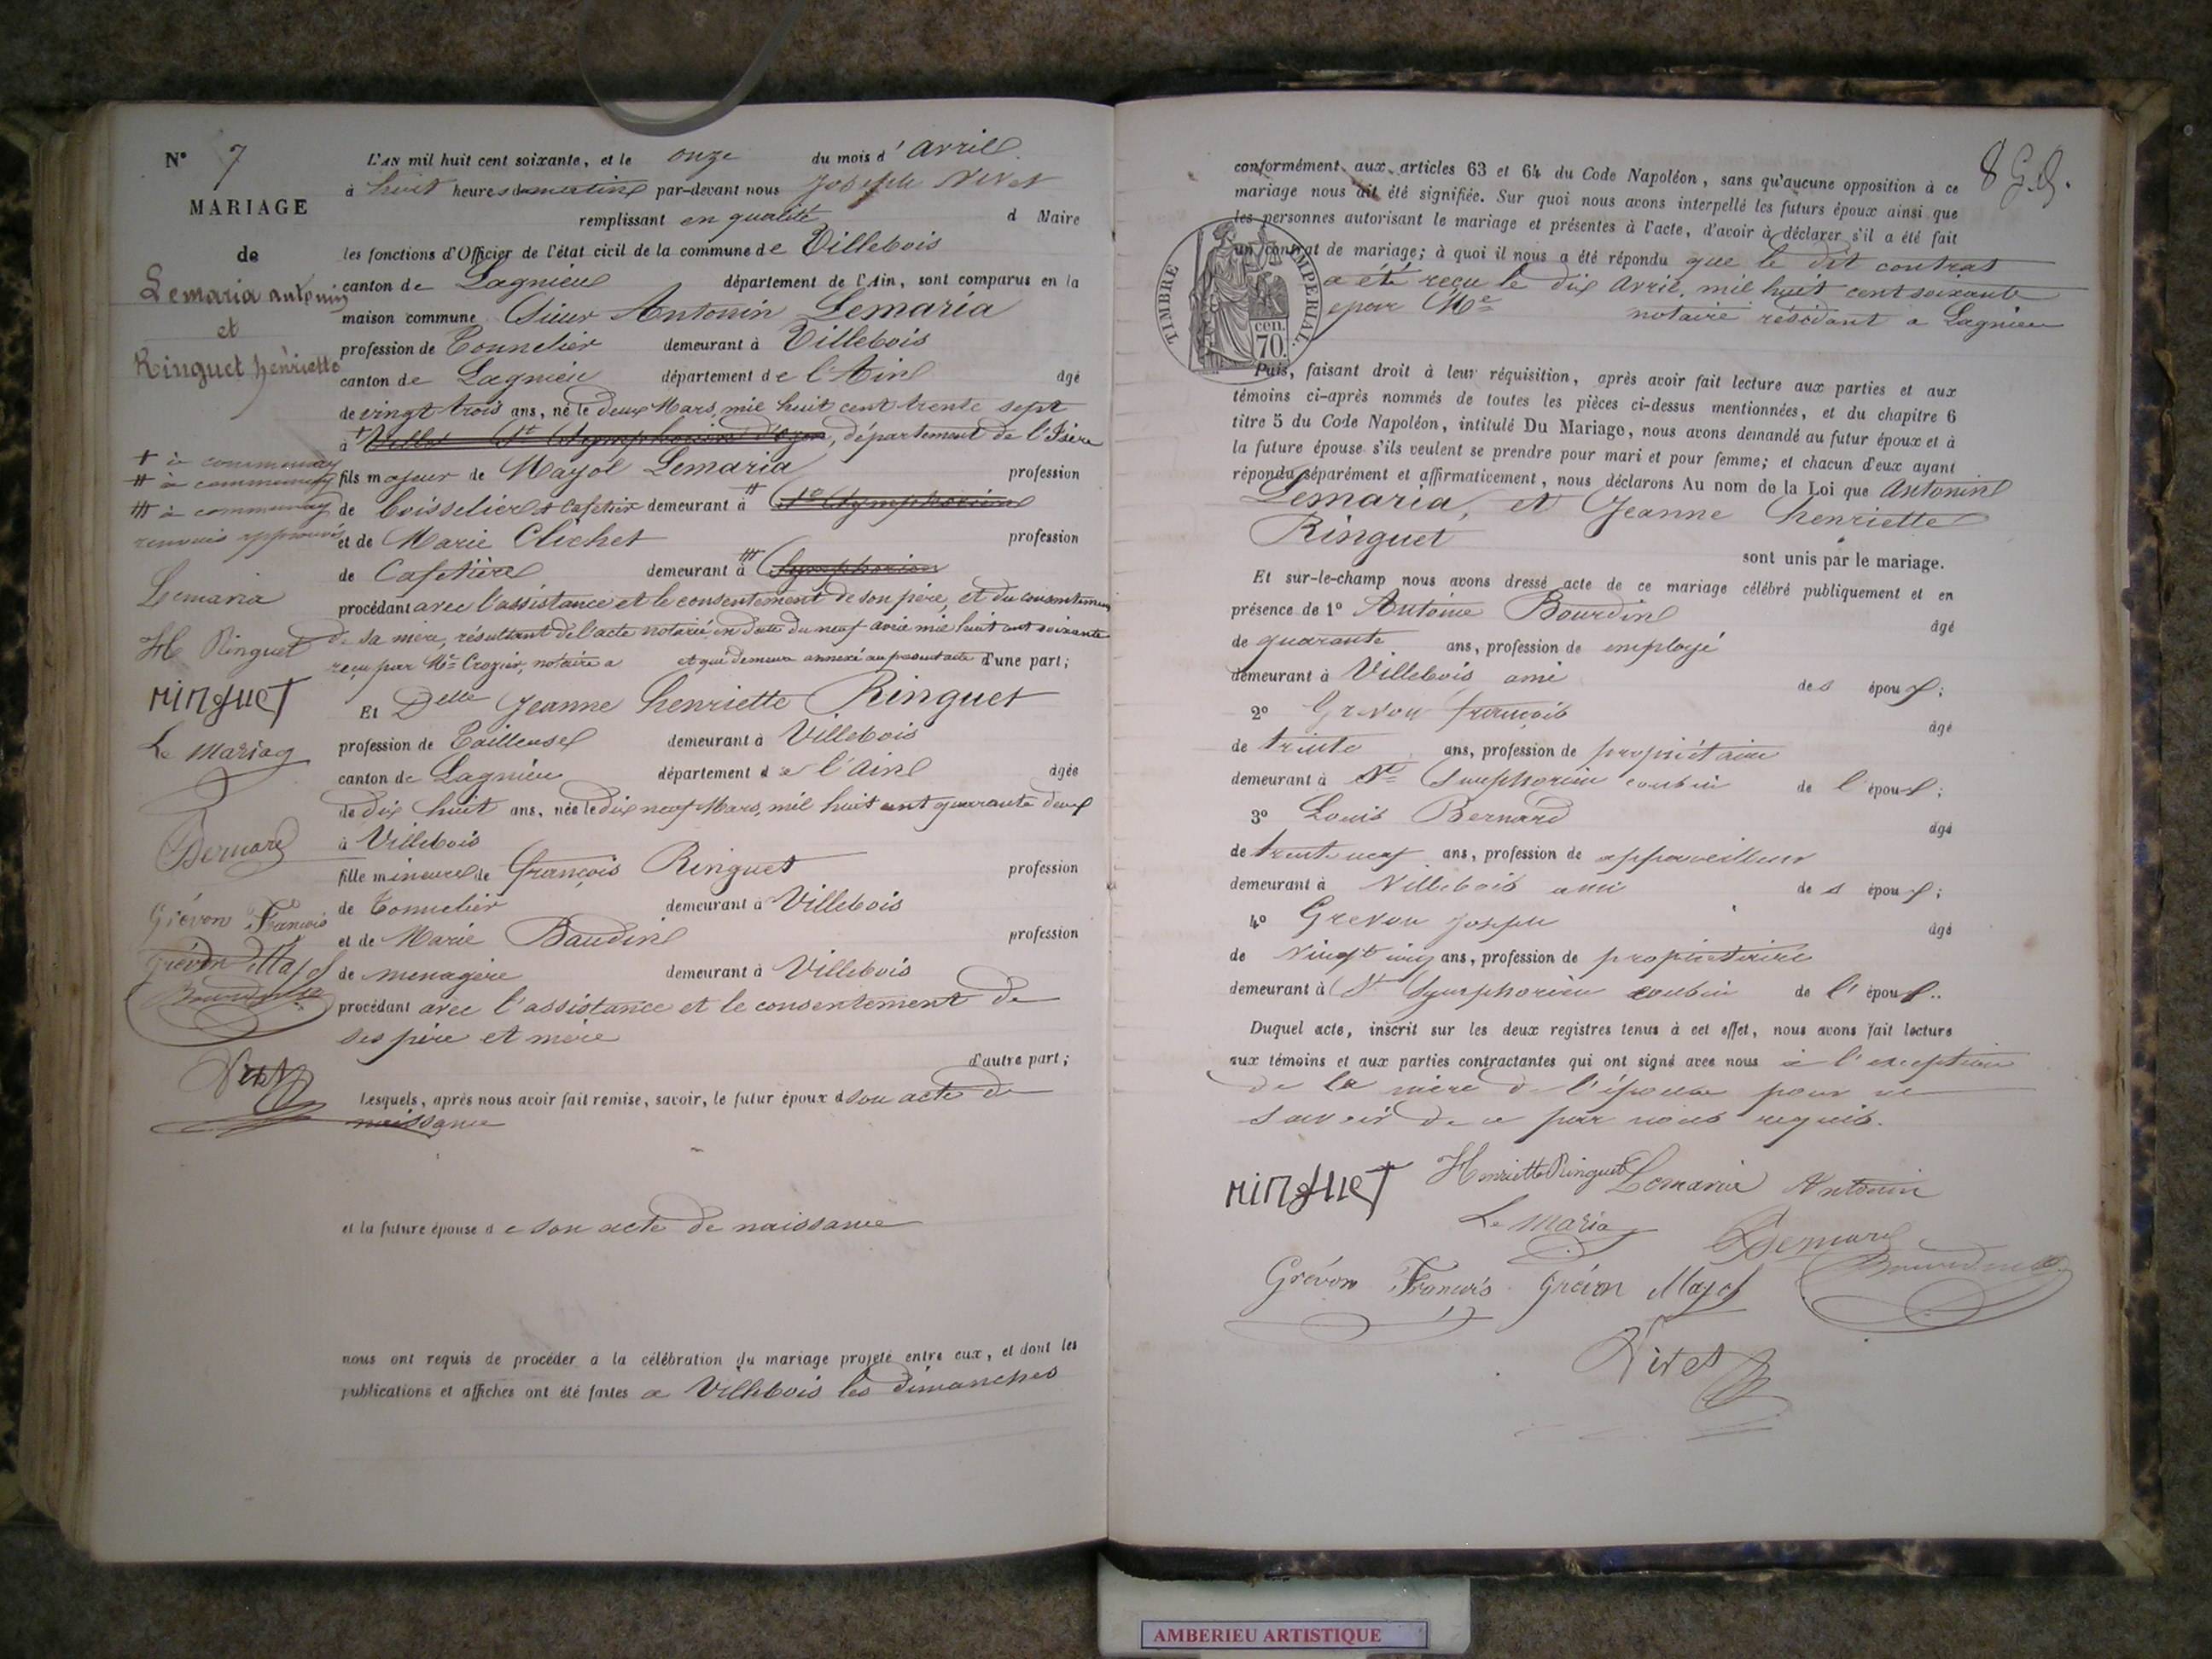 N° 7
MARIAGE
de
Lemaria antonin
et
Ringuet henriette
L'AN mil huit cent soixante, et le onze du mois d'avril
à huit heures du matin par-devant nous Joseph Rivet
remplissant en qualité d Maire
les fonctions d'Officier de l'état civil de la commune de Villebois
canton de Lagnieu département de l'Ain, sont comparus en la
maison commune Sieur Antonin Lemaria
profession de Tonnelier demeurant à Villebois
canton de Lagnieu département de l'Ain âgé
de vingt trois ans, né le deux Mars, mil huit cent trente sept
à + St Symphorien d'Ozon, département de l'Isère
fils majeur de Mayol Lemaria profession
de boisselier & Cafetier demeurant à # St Symphorien
et de Marie Clichet profession
de Cafetière demeurant à Symphorien
procédant avec l'assistance et le consentement de son père, et du consentement
de sa mère, résultant de l'acte notarié en date du neuf avril mil huit cent soixante
reçu par Me Crozier, notaire a et qui demeure annexé au présent acte d'une part;
+ à communay
# à communay
à communay
renvois approuvés
Lemaria
H Ringuet
ringuet
Le Maria
Bernard
Grévon François
Grévon Mayol
Rivet
Et Delle Jeanne henriette Ringuet
profession de Tailleuse demeurant à Villebois
canton de Lagnieu département de l'Ain âgée
de dix huit ans, née le dix neuf Mars, mil huit cent quarante deux
à Villebois
fille mineure de François Ringuet profession
de Tonnelier demeurant à Villebois
et de Marie Baudin profession
de menagère demeurant à Villebois
procédant avec l'assistance et le consentement de
ses père et mère
d'autre part;
Lesquels, après nous avoir fait remise, savoir, le futur époux d son acte de
naissance
et la future épouse de son acte de naissance
nous ont requis de procéder à la célébration du mariage projeté entre eux, et dont les
publications et affiches ont été faites a Villebois les dimanches
8 G.D.
conformément aux articles 63 et 64 du Code Napoléon, sans qu'aucune opposition à ce
mariage nous ait été signifiée. Sur quoi nous avons interpellé les futurs époux ainsi que
les personnes autorisant le mariage et présentes à l'acte, d'avoir à déclarer s'il a été fait
un contrat de mariage; à quoi il nous a été répondu que le dit contrat
a été reçu le dix Avril, mil huit cent soixante
par Me notaire résidant a Lagnieu
TIMBRE IMPERIAL.
70 cen.
Puis, faisant droit à leur réquisition, après avoir fait lecture aux parties et aux
témoins ci-après nommés de toutes les pièces ci-dessus mentionnées, et du chapitre 6
titre 5 du Code Napoléon, intitulé Du Mariage, nous avons demandé au futur époux et à
la future épouse s'ils veulent se prendre pour mari et pour femme; et chacun d'eux ayant
répondu séparément et affirmativement, nous déclarons Au nom de la Loi que Antonin
Lemaria, et Jeanne henriette
Ringuet
sont unis par le mariage.
Et sur-le-champ nous avons dressé acte de ce mariage célébré publiquement et en
présence de 1° Antoine Bourdin âgé
de quarante ans, profession de employé
demeurant à Villebois ami des époux;
2° Grévon françois âgé
de trente ans, profession de propriétaire
demeurant à St Symphorien cousin de l'époux;
3° Louis Bernard âgé
de trente neuf ans, profession de appareilleur
demeurant à Villebois ami des époux;
4° Grévon Joseph âgé
de vingt cinq ans, profession de propriétaire
demeurant à St Symphorien cousin de l'époux..
Duquel acte, inscrit sur les deux registres tenus à cet effet, nous avons fait lecture
aux témoins et aux parties contractantes qui ont signé avec nous à l'exception
de la mère de l'épouse pour ne
savoir de ce par nous requis.
ringuet Henriette Ringuet Lemaria Antonin
Le Maria Bernard
Grévon François Grévon Mayol
Rivet
AMBERIEU ARTISTIQUE